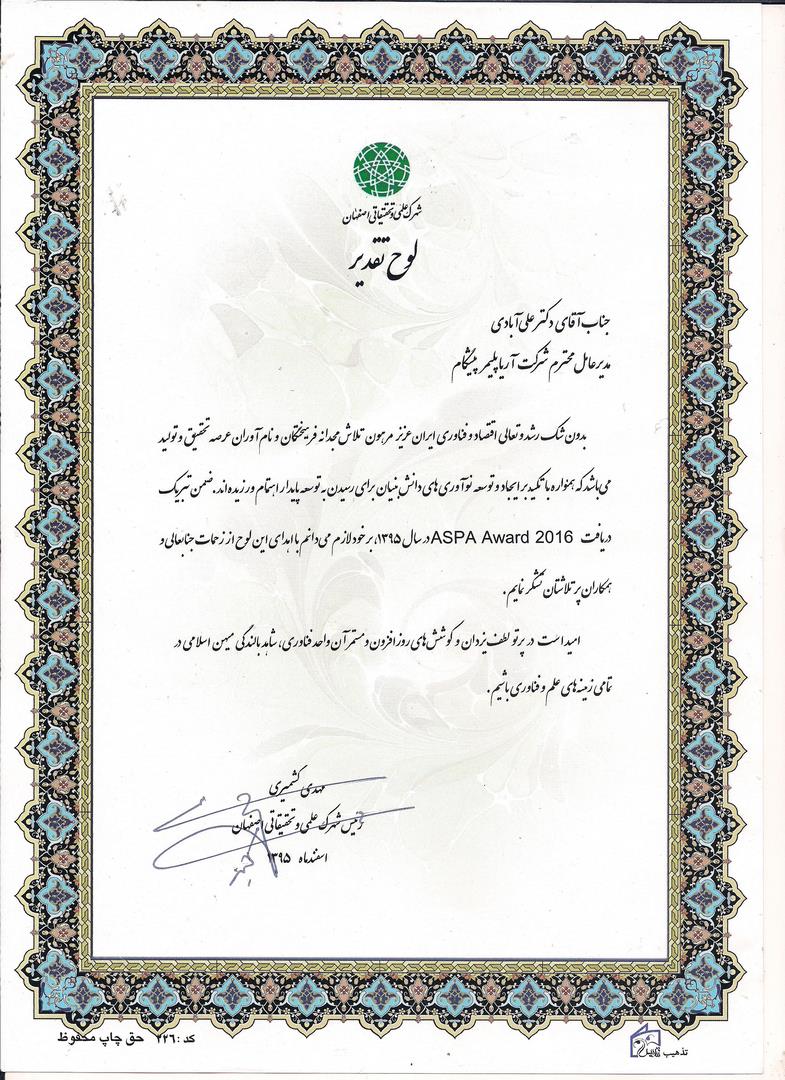 شهرک علمی و تحقیقاتی اصفهان
لوح تقدیر
جناب آقای دکتر علی آبادی
مدیرعامل محترم شرکت آریا پلیمر پیشگام
بدون شک رشد و تعالی اقتصاد و فناوری ایران عزیز مرهون تلاش مجدانه فرهیختگان و نام آوران عرصه تحقیق و تولید
می‌باشد که همواره با تکیه بر ایجاد و توسعه نوآوری‌های دانش بنیان برای رسیدن به توسعه پایدار اهتمام ورزیده‌اند. ضمن تبریک
دریافت ASPA Award 2016 در سال ۱۳۹۵، بر خود لازم می‌دانم با اهدای این لوح از زحمات جنابعالی و
همکاران پر تلاشتان تشکر نمایم.
امید است در پرتو لطف یزدان و کوشش‌های روزافزون و مستمر آن واحد فناوری، شاهد بالندگی میهن اسلامی در
تمامی زمینه‌های علم و فناوری باشیم.
مهدی کشمیری
رئیس شهرک علمی و تحقیقاتی اصفهان
اسفندماه ۱۳۹۵
کد: ۲۲۶ حق چاپ محفوظ
تذهیب